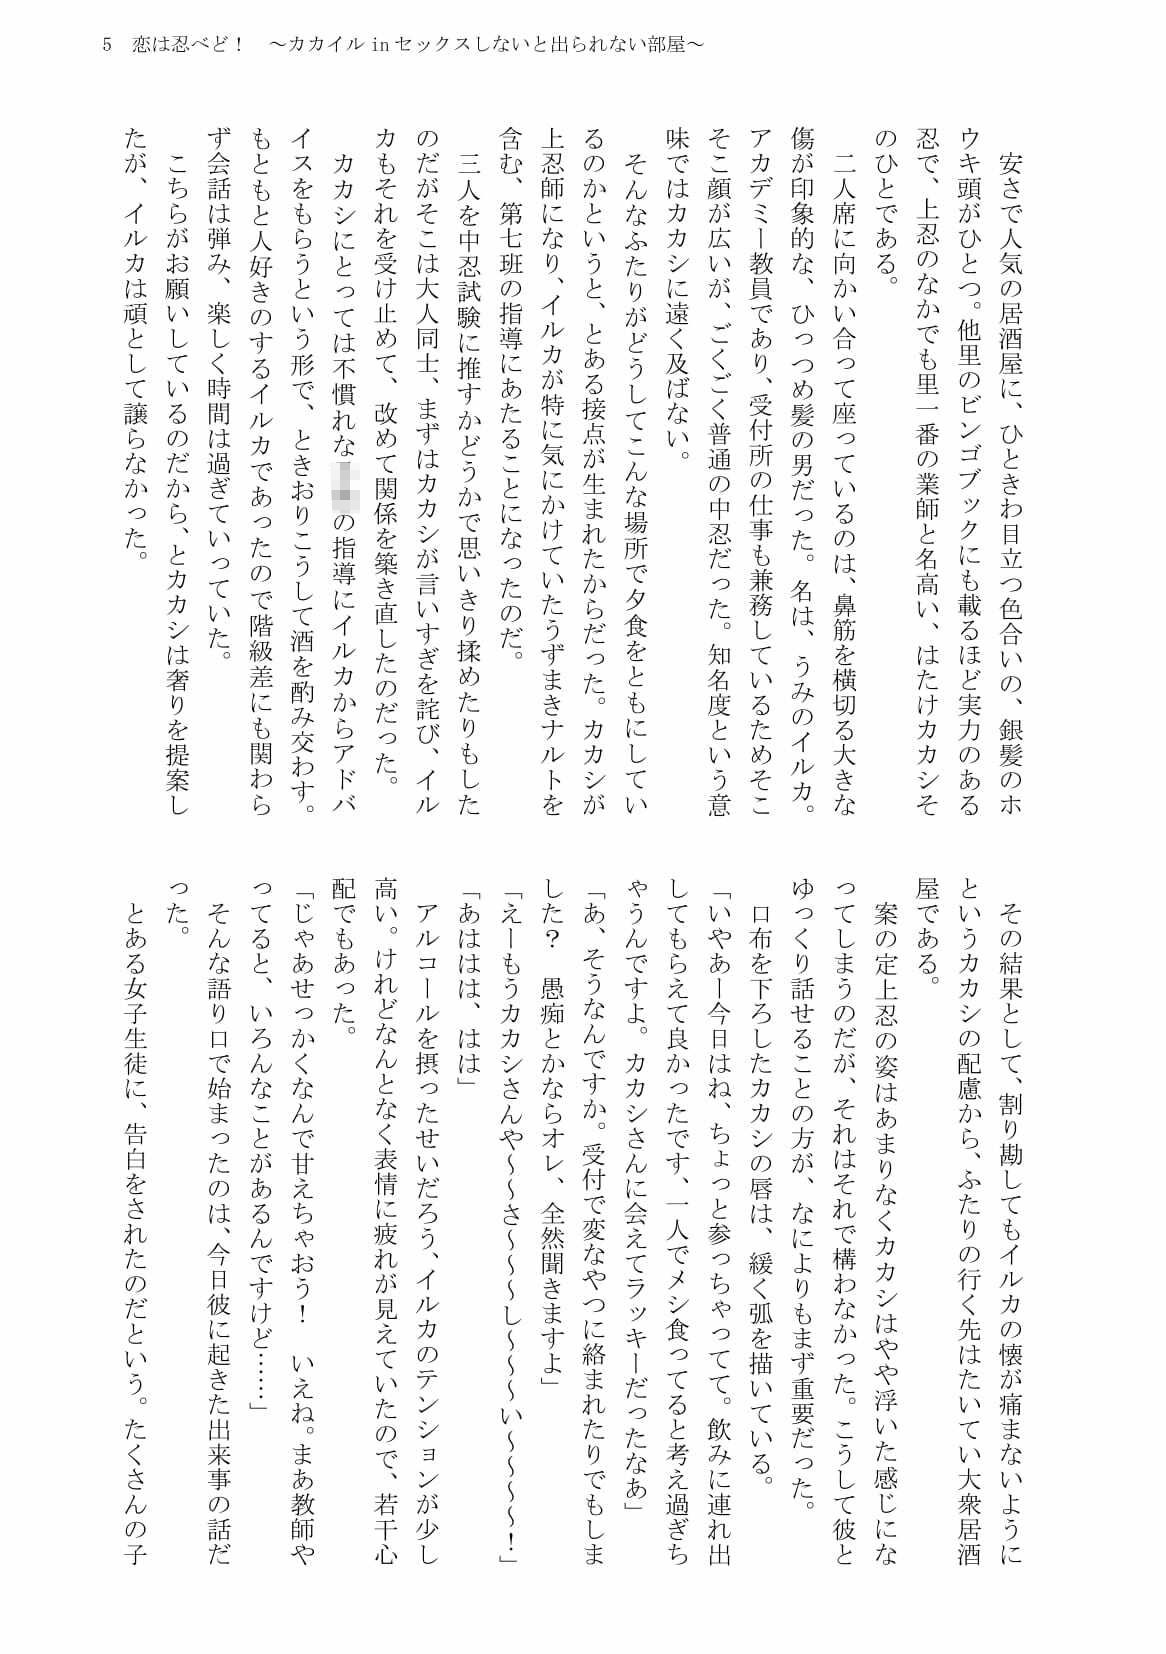 5　恋は忍べど！　～カカイル in セックスしないと出られない部屋～
　安さで人気の居酒屋に、ひときわ目立つ色合いの、銀髪のホ
ウキ頭がひとつ。他里のビンゴブックにも載るほど実力のある
忍で、上忍のなかでも里一番の業師と名高い、はたけカカシそ
のひとである。
　二人席に向かい合って座っているのは、鼻筋を横切る大きな
傷が印象的な、ひっつめ髪の男だった。名は、うみのイルカ。
アカデミー教員であり、受付所の仕事も兼務しているためそこ
そこ顔が広いが、ごくごく普通の中忍だった。知名度という意
味ではカカシに遠く及ばない。
　そんなふたりがどうしてこんな場所で夕食をともにしてい
るのかというと、とある接点が生まれたからだった。カカシが
上忍師になり、イルカが特に気にかけていたうずまきナルトを
含む、第七班の指導にあたることになったのだ。
　三人を中忍試験に推すかどうかで思いきり揉めたりもした
のだがそこは大人同士、まずはカカシが言いすぎを詫び、イル
カもそれを受け止めて、改めて関係を築き直したのだった。
　カカシにとっては不慣れなの指導にイルカからアドバ
イスをもらうという形で、ときおりこうして酒を酌み交わす。
もともと人好きのするイルカであったので階級差にも関わら
ず会話は弾み、楽しく時間は過ぎていっていた。
　こちらがお願いしているのだから、とカカシは奢りを提案し
たが、イルカは頑として譲らなかった。
　その結果として、割り勘してもイルカの懐が痛まないように
というカカシの配慮から、ふたりの行く先はたいてい大衆居酒
屋である。
　案の定上忍の姿はあまりなくカカシはやや浮いた感じにな
ってしまうのだが、それはそれで構わなかった。こうして彼と
ゆっくり話せることの方が、なによりもまず重要だった。
　口布を下ろしたカカシの唇は、緩く弧を描いている。
「いやあー今日はね、ちょっと参っちゃってて。飲みに連れ出
してもらえて良かったです、一人でメシ食ってると考え過ぎち
ゃうんですよ。カカシさんに会えてラッキーだったなあ」
「あ、そうなんですか。受付で変なやつに絡まれたりでもしま
した？　愚痴とかならオレ、全然聞きますよ」
「えーもうカカシさんや～～さ～～～し～～～い～～～～！」
「あははは、はは」
　アルコールを摂ったせいだろう、イルカのテンションが少し
高い。けれどなんとなく表情に疲れが見えていたので、若干心
配でもあった。
「じゃあせっかくなんで甘えちゃおう！　いえね。まあ教師や
ってると、いろんなことがあるんですけど……」
　そんな語り口で始まったのは、今日彼に起きた出来事の話だ
った。
　とある女子生徒に、告白をされたのだという。たくさんの子